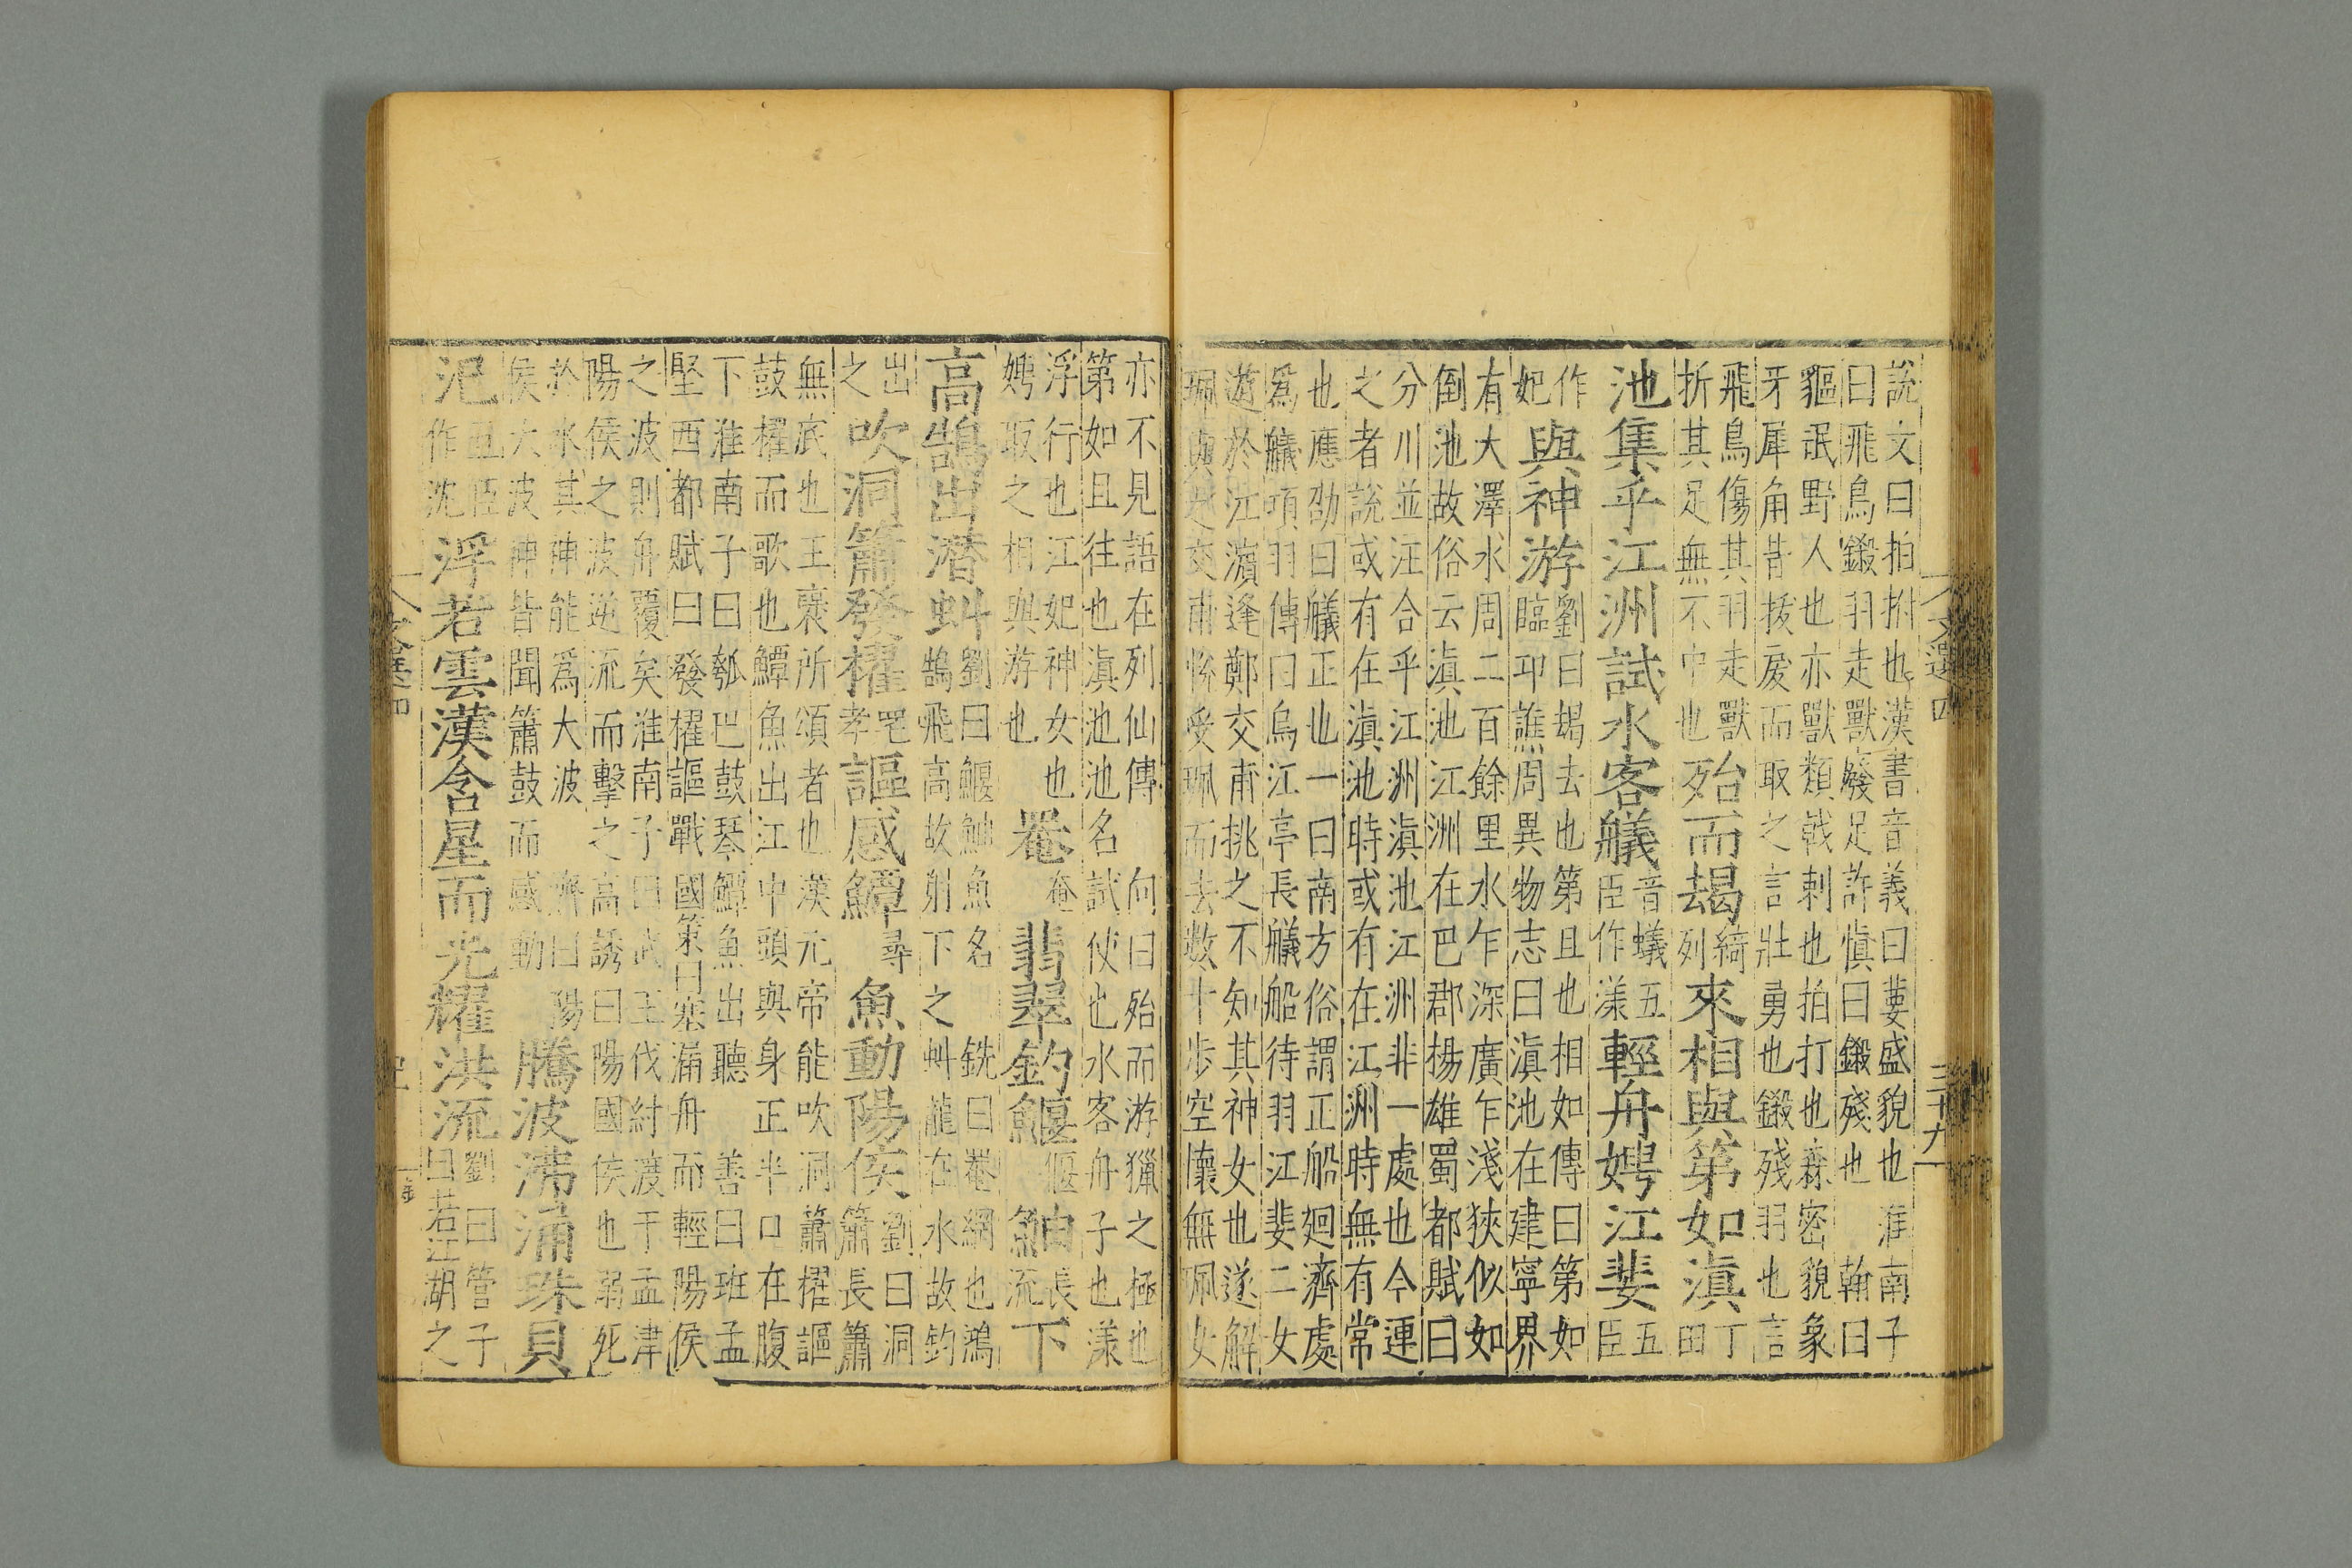 文選四 三十九
說文曰拍拊也漢書音義曰萋盛貌也 淮南子
曰飛鳥鎩羽走獸廢足許慎曰鎩殘也 翰曰
貙氓野人也亦獸類戟刺也拍打也森密貌象
牙犀角昔拔戾而取之言壯勇也鎩殘羽也言
飛鳥傷其羽走獸
折其足無不中也
殆而朅綺列來相與第如滇丁田
池集乎江洲試水客艤音蟻五臣作漾輕舟娉江婓五臣
作妃與神游劉曰朅去也第且也相如傳曰第如
臨邛譙周異物志曰滇池在建寧界
有大澤水周二百餘里水乍深廣乍淺狹似如
倒池故俗云滇池江洲在巴郡揚雄蜀都賦曰
分川並汪合乎江洲滇池江洲非一處也今連
之者說或有在滇池時或有在江洲時無有常
也應劭曰艤正也一曰南方俗謂正船廻濟處
爲艤項羽傳曰烏江亭長艤船待羽江婓二女
遊於江濵逢鄭交甫挑之不知其神女也遂解
珮與之交甫悅受珮而去數十步空懷無珮女
亦不見語在列仙傳 向曰殆而游獵之極也
第如且往也滇池池名試使也水客舟子也漾
浮行也江妃神女也
娉取之相與游也
罨奄翡翠釣鰋偃鮋由長魚流下
高鵠出潛虯劉曰鰋鮋魚名 銑曰罨網也鴻
鵠飛高故射下之虯龍在水故釣
出之吹洞簫發櫂宅孝謳感鱏尋魚動陽侯劉曰洞
簫長簫
無底也王襃所頌者也漢元帝能吹洞簫櫂謳
鼓櫂而歌也鱏魚出江中頭與身正半口在腹
下淮南子曰瓠巴鼓琴鱏魚出聽 善曰班孟
堅西都賦曰發櫂謳戰國策曰塞漏舟而輕陽侯
之波則舟覆矣淮南子曰武王伐紂渡于孟津
陽侯之波逆流而擊之高誘曰陽國侯也溺死
於水其神能爲大波 濟曰陽
侯大波神皆聞簫鼓而感動
騰波沸涌珠貝
汜五臣作沈浮若雲漢含星而光耀洪流劉曰管子
曰若江湖之